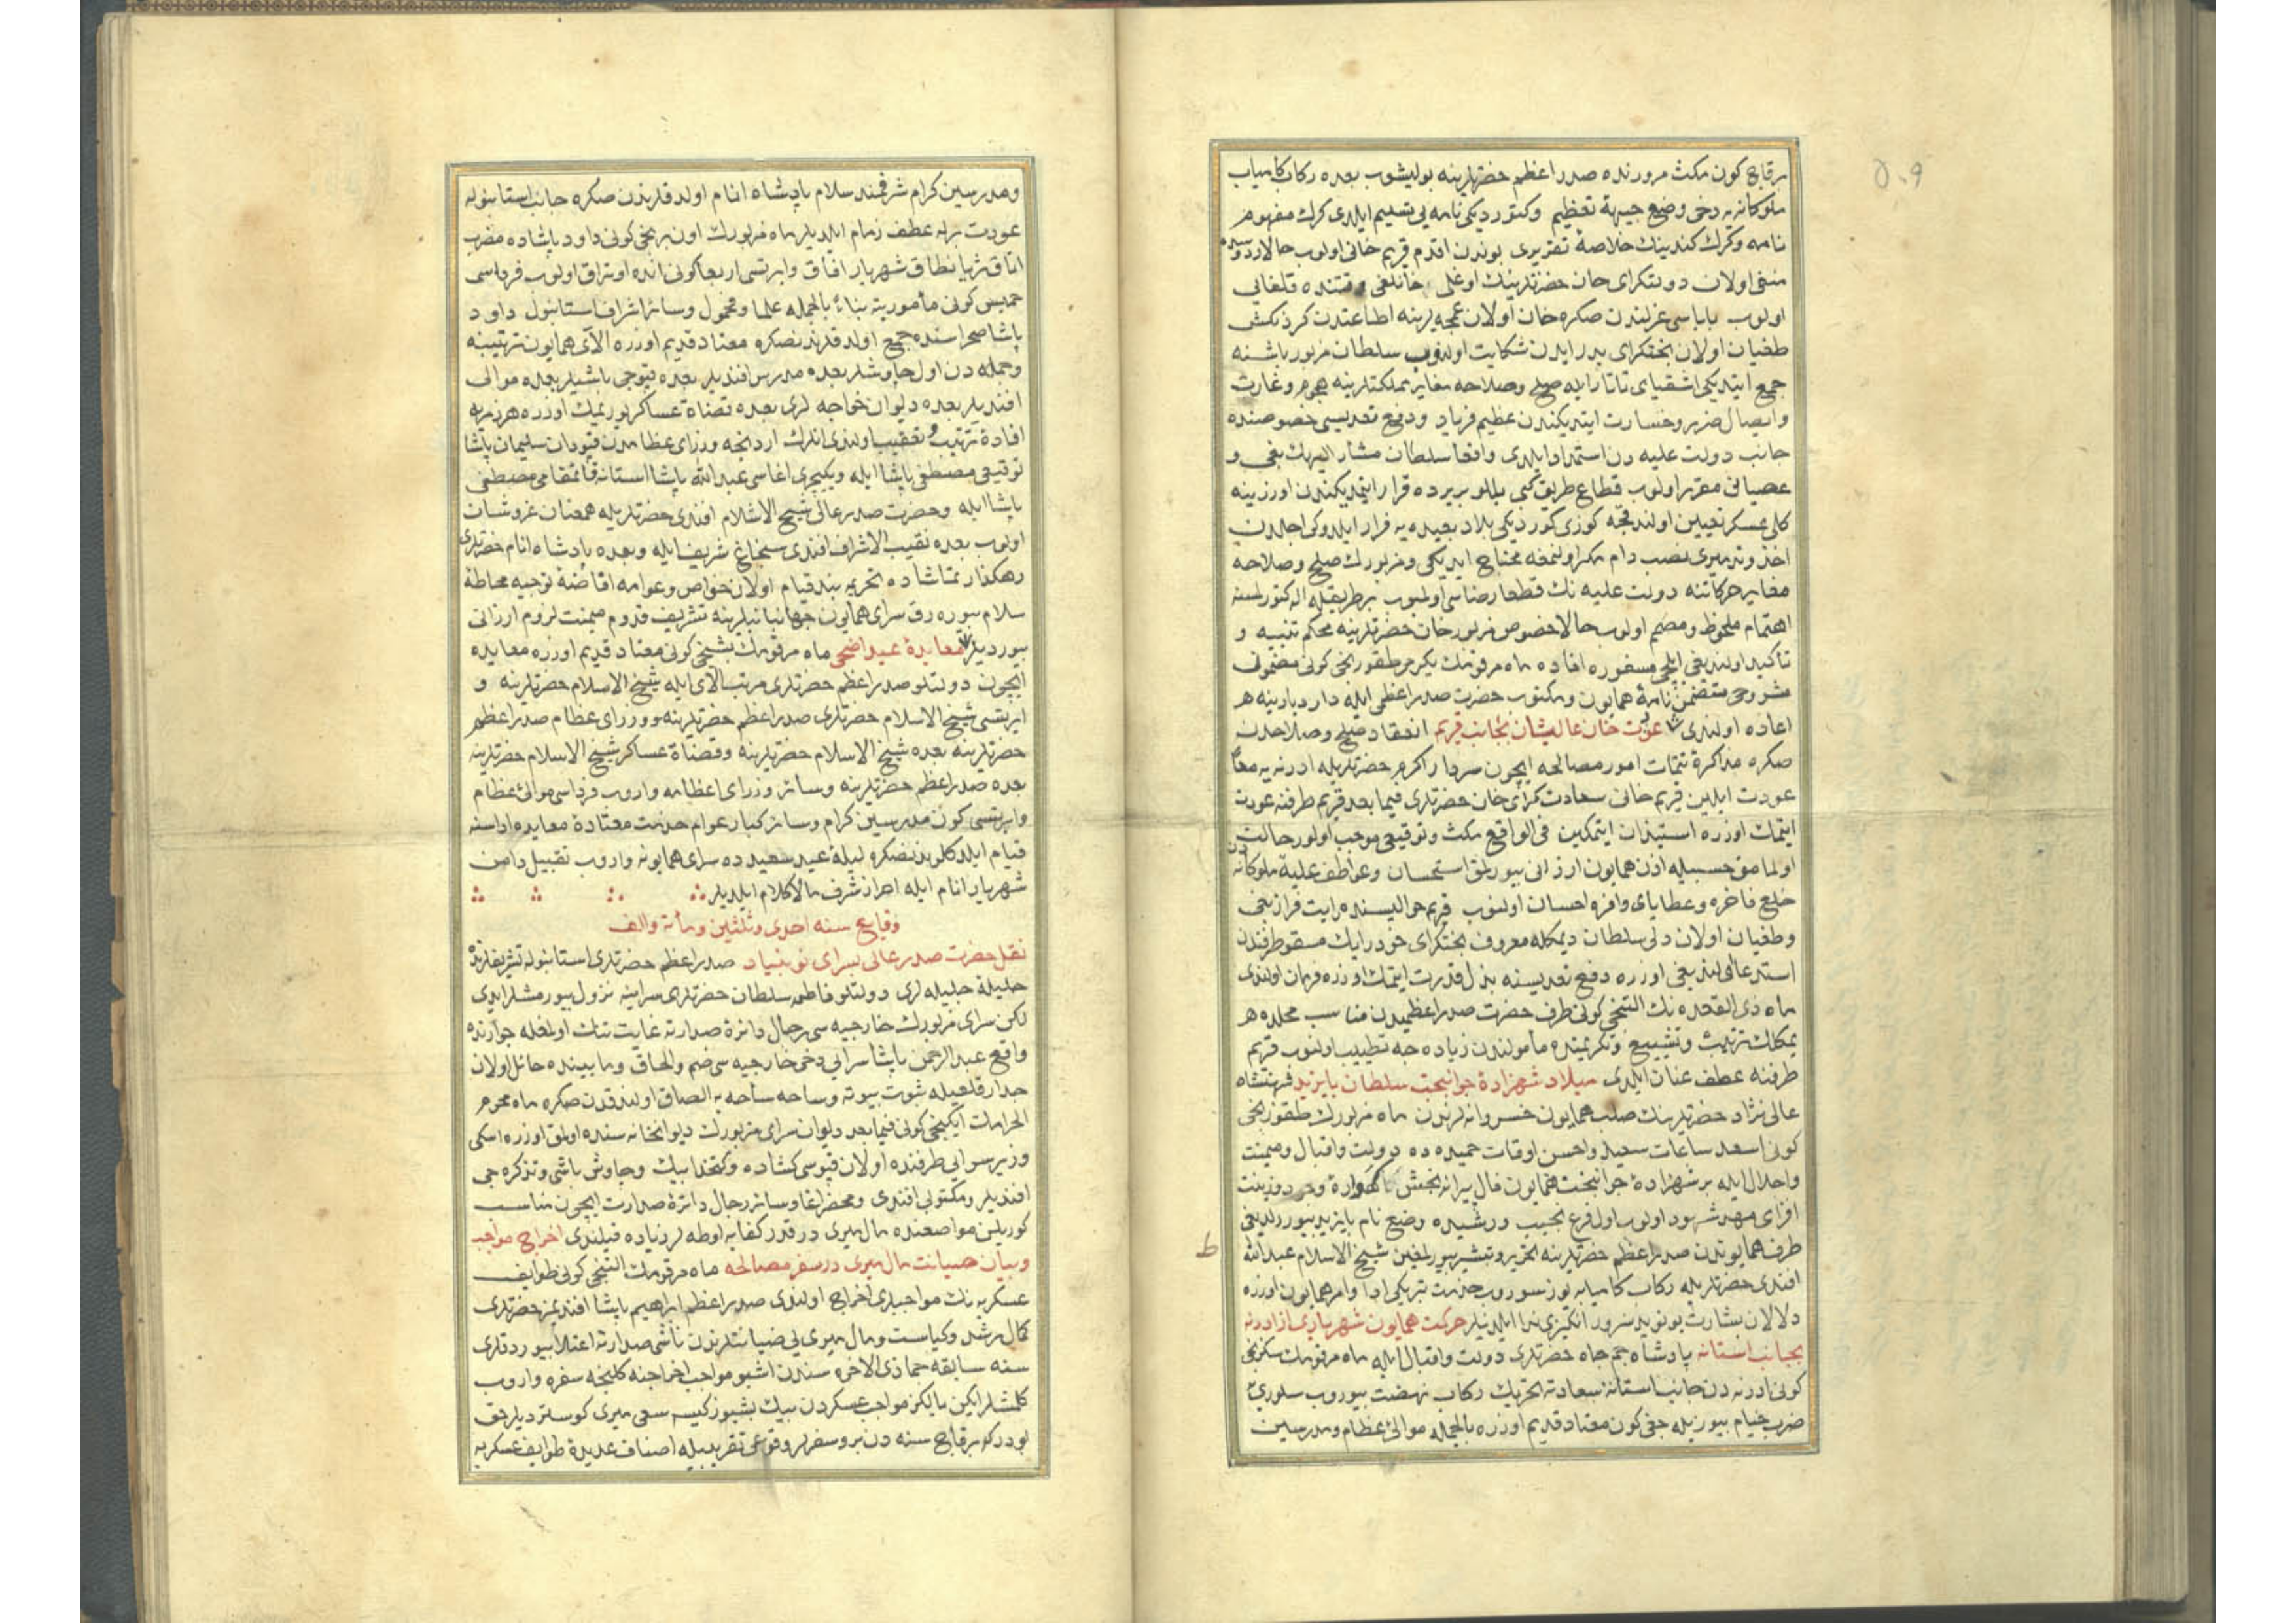 برقاچ کون مکث مرورنده صدر اعظم حضرتلرینه بولیشوب بعده رکاب کامیاب
ملوکانه‌یه دخی وضع جبههٔ تعظیم و کتوردیکی نامه‌یی تسلیم ایلدی کرک مفهوم
نامه و کرک کندینك خلاصهٔ تقریری بوندن اقدم قریم خانی اولوب حالا
منفی اولان دولتکرای خان حضرتلرینك اوغلی خانلغی وقتنده قلغای
اولوب باباسی عزلندن صکره خان اولان عمجه‌لرینه اطاعتدن کردنکش
طغیان اولان بختکرای بدرایدن شکایت اولنوب سلطان مزبور باشنه
جمع ایتدیکی اشقیای تاتار ایله صلح و صلاحه مغایر مملکتلرینه هجوم و غارت
و ایصال ضرر و خسارت ایتدیکندن عظیم فریاد و دفع تعدیسی خصوصنده
جانب دولت علیه دن استمداد ایلدی واقعا سلطان مشار الیهك بغی و
عصیانی مقرر اولوب قطاع طریق کبی بللو بریرده قرار ایتمدیکندن اوزرینه
کلی عسکر تعیین اولندقجه کوزی کوردیکی بلاد بعیده‌یه فرار ایلدوکی اجلدن
اخذ و تدمیری نصب دام مکر اولنمغه محتاج ایدیکی و مزبورك صلح و صلاحه
مغایر حرکاتنه دولت علیه نك قطعا رضاسی اولمیوب برطریقله اله کتورلمسنه
اهتمام ملحوظ و مصمم اولوب حالا خصوص مزبور خان حضرتلرینه محکم تنبیه و
تأکید اولندیغی ایلچی مسفوره افاده ماه مرقومك یکرمی طقوزنجی کونی مضمونی
مشروحی متضمن نامهٔ همایون و مکتوب حضرت صدر اعظمی ایله دار دیارینه
اعاده اولندی عودت خان عالیشان بجانب قریم انعقاد صلح و صلاحدن
صکره مذاکرهٔ تتمات امور مصالحه ایچون سردار اکرم حضرتلریله ادرنه‌یه معا
عودت ایلین قریم خانی سعادت کرای خان حضرتلری فیما بعد قریم طرفنه عودت
ایتمك اوزره استیذان ایتمکین فی الواقع مکث و توقیفی موجب اولور حالت
اولمامق حسبیله اذن همایون ارزانی بیورلمق استحسان و عواطف علیهٔ ملوکانه‌دن
خلع فاخره و عطایای وافره احسان اولنوب قریم حوالیسنده رایت فراز بغی
و طغیان اولان دلی سلطان دیمکله معروف بختکرای خودرایك مسقو طرفندن
استدعا اولندیغی اوزره دفع تعدیسنه بذل قدرت ایتمك اوزره فرمان اولندی
ماه ذی القعده نك التنجی کونی طرف حضرت صدر اعظمیدن مناسب محلده
یمکلك ترتیب و تشییع و تکریمنده مأمولندن زیاده‌جه تطییب اولنوب قریم
طرفنه عطف عنان ایلدی میلاد شهزادهٔ جوانبخت سلطان بایزید شهنشاه
عالی نژاد حضرتلرینك صلب همایون خسروانه لرندن ماه مزبورك طقوزنجی
کونی اسعد ساعات سعید و احسن اوقات حمیده ده دولت و اقبال و میمنت
و اجلال ایله بر شهزادهٔ جوانبخت همایون فال پیرانه‌بخش کهوارهٔ وجود و زینت
افزای مهد شهود اولوب اول فرع نجیب و رشیده وضع نام بایزید بیورلدیغی
طرف همایوندن صدر اعظم حضرتلرینه تحریر و تبشیر بیورلمغین شیخ الاسلام عبدالله
افندی حضرتلریله رکاب کامیابه یوز سوروب خدمت تبریکی ادا و امر همایون اوزره
دلالان بشارت بو نوید سرور انکیزی ندا ایلدیلر حرکت همایون شهریاری از ادرنه
بجانب استانه پادشاه جم جاه حضرتلری دولت و اقبال ایله ماه مرقومك سکزنجی
کونی ادرنه دن جانب استانهٔ سعادته تحریك رکاب نهضت بیوروب سلوری‌ه
ضرب خیام بیوریله‌جغی کون معتاد قدیم اوزره بالجمله موالی عظام و مدرسین
و مدرسین کرام شرفمند سلام پادشاه انام اولدقلرندن صکره جانب استانبوله
عودت برله عطف زمام ایلدیلر ماه مزبورك اون برنجی کونی داود پاشاده مضرب
اتاق ثریا نطاق شهریار افاق و ایرتسی اربعا کونی انده اوتراق اولوب فرداسی
خمیس کونی مأموریته بناءً بالجمله علما و فحول و سائر اشراف استانبول داود
پاشا صحراسنده جمع اولدقلرندنصکره معتاد قدیم اوزره الای همایون ترتیبنه
و جمله دن اول چاوشلر بعده مدرس افندیلر بعده قپوجی باشیلر بعده موالی
افندیلر بعده دیوان خواجه لری بعده قضاة عساکر یوریمك اوزره هر زمره
افادهٔ ترتیب و تعقیب اولندی انلرك اردنجه وزرای عظامدن قپودان سلیمان پاشا
توقیعی مصطفی پاشا ایله و یکیچری اغاسی عبدالله پاشا استانه قائمقامی مصطفی
پاشا ایله و حضرت صدر عالی شیخ الاسلام افندی حضرتلریله همعنان عز و شان
اولوب بعده نقیب الاشراف افندی سنجاغ شریف ایله و بعده پادشاه انام حضرتلری
رهکذار تماشاده تحریم‌بند قیام اولان خواص و عوامه افاضهٔ توجیه محاطهٔ
سلام بیوره‌رق سرای همایون جهانبانیلرینه تشریف قدوم میمنت لزوم ارزانی
بیوردیلر معایدهٔ عید اضحی ماه مرقومك بشنجی کونی معتاد قدیم اوزره معایده
ایچون دولتلو صدر اعظم حضرتلری مرتب الای ایله شیخ الاسلام حضرتلرینه و
ایرتسی شیخ الاسلام حضرتلری صدر اعظم حضرتلرینه و وزرای عظام صدر اعظم
حضرتلرینه بعده شیخ الاسلام حضرتلرینه و قضاة عساکر شیخ الاسلام حضرتلرینه
بعده صدر اعظم حضرتلرینه و سائر وزرای اعظامه واروب فرداسی موالی عظام
و ایرتسی کون مدرسین کرام و سائر کبار عوام خدمت معتادهٔ معایده اداسنه
قیام ایلدکلرندنصکره لیلهٔ عید سعیده ده سرای همایونه واروب تقبیل دامن
شهریار انام ایله احراز شرف مالاکلام ایلدیلر
وقایع سنه احدی و ثلثین و مأته والف
نقل حضرت صدر عالی بسرای نو بنیاد صدر اعظم حضرتلری استانبوله تشریفلرنده
حلیلهٔ جلیله لری دولتلو فاطمه سلطان حضرتلری سراینه نزول بیورمشلر ایدی
لکن سرای مزبورك خارجیه سی رجال دائرهٔ صدارته غایت تنك اولمغله جوارنده
واقع عبدالرحمن پاشا سرایی دخی خارجیه سی ضم و الحاق و مابیننده حائل اولان
جدار قلعیله ثبوت بیوته و ساحه ساحه‌یه الصاق اولندقدن صکره ماه محرم
الحرامك ایکنجی کونی فیما بعد دیوان سرای مزبورك دیوانخانه سنده اولمق اوزره اسکی
وزیر سرایی طرفنده اولان قپوسی کشاده و کتخدا بیك و چاوش باشی و تذکره جی
افندیلر و مکتوبی افندی و محضر اغا و سائر رجال دائرهٔ صدارت ایچون مناسب
کوریلن مواضعنده مال میری در قدر کفایه اوطه لر زیاده قیلندی اخراج مواجب
و بیان صیانت مال میری در سفر مصالحه ماه مرقومك التنجی کونی طوایف
عسکریه نك مواجبلری اخراج اولندی صدر اعظم ابراهیم پاشا افندیمز حضرتلری
کمال رشد و کیاست و مال میری‌یی صیانتلرندن ناشی صدارته اعتلا بیوردقلری
سنه سابقه جماذی الاخره سندن اشبو مواجب اخراجنه کلنجه سفره واروب
کلمشلر ایکن یالکز مواجب عسکردن بیك بشیوز کیسه سعی میری کوستردیلر حق
بودرکه برقاچ سنه دن برو سفر لر وقوعی تقریبیله اصناف عدیدهٔ طوایف عسکریه